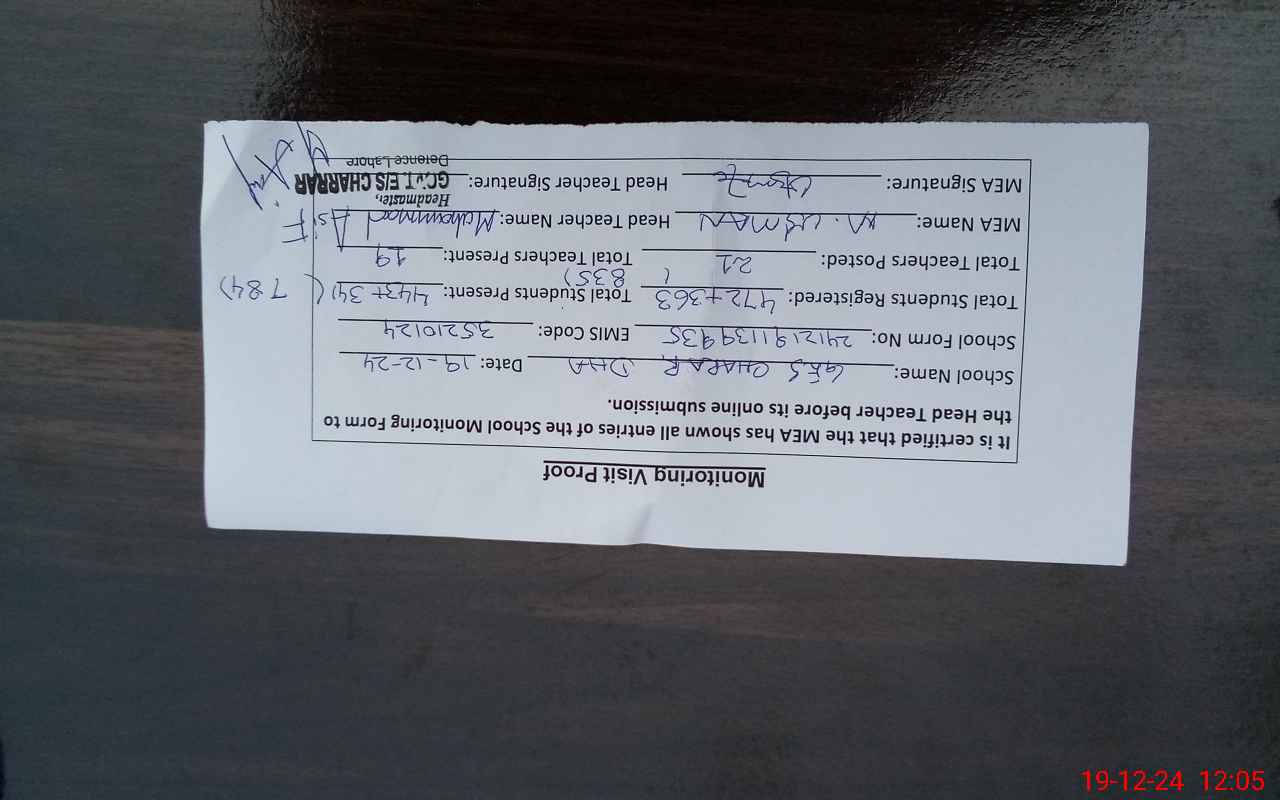 Monitoring Visit Proof
It is certified that the MEA has shown all entries of the School Monitoring Form to
the Head Teacher before its online submission.
School Name: GES CHARAR DHA Date: 19-12-24
School Form No: 2412191139935 EMIS Code: 35210124
Total Students Registered: 472+363 (835) Total Students Present: 443+341 (784)
Total Teachers Posted: 21 Total Teachers Present: 19
MEA Name: M. USMAN Head Teacher Name: Mohammad Asif
MEA Signature: Head Teacher Signature:
Headmaster,
GOVT. E/S CHARRAR
Defence Lahore
19-12-24 12:05